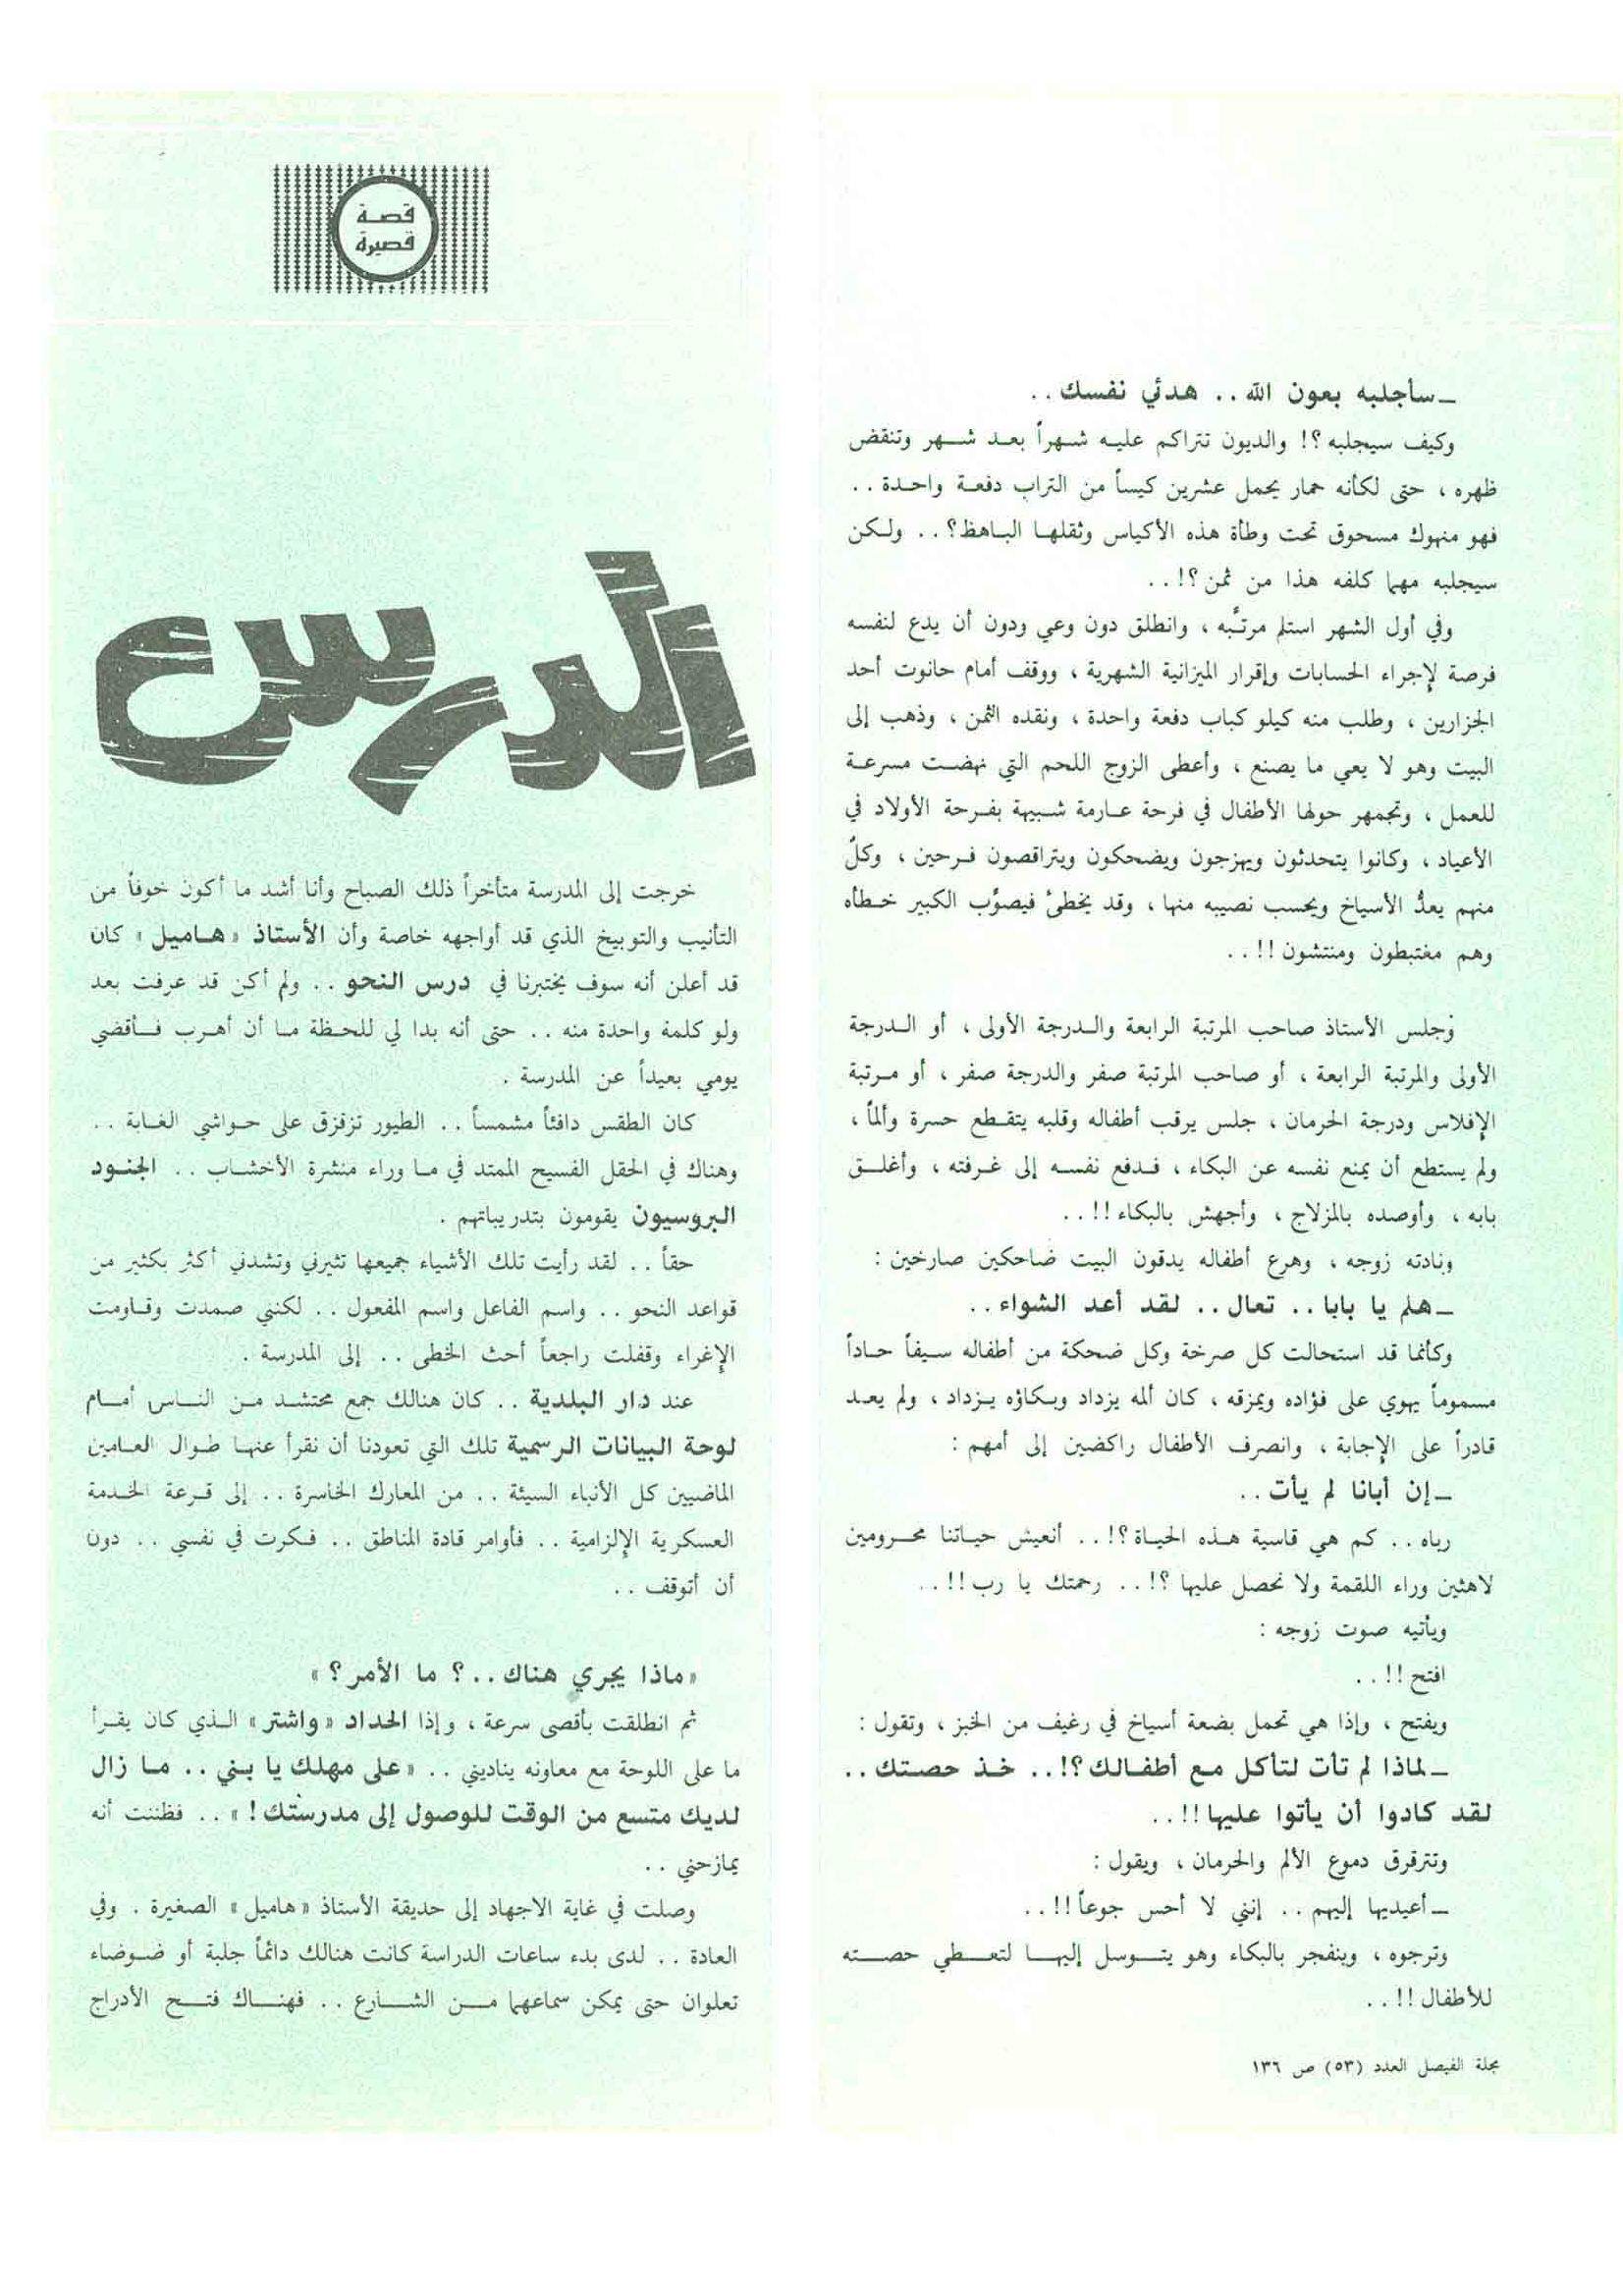 ـ سأجلبه بعون الله .. هدئي نفسك ..
وكيف سيجلبه ؟! والديون تتراكم عليه شهراً بعد شهر وتنقض
ظهره ، حتى لكأنه حمار يحمل عشرين كيساً من التراب دفعة واحدة ..
فهو منهوك مسحوق تحت وطأة هذه الأكياس وثقلها الباهظ ؟ .. ولكن
سيجلبه مهما كلفه هذا من ثمن ؟! ..
وفي أول الشهر استلم مرتّبه ، وانطلق دون وعي ودون أن يدع لنفسه
فرصة لإجراء الحسابات وإقرار الميزانية الشهرية ، ووقف أمام حانوت أحد
الجزارين ، وطلب منه كيلو كباب دفعة واحدة ، ونقده الثمن ، وذهب إلى
البيت وهو لا يعي ما يصنع ، وأعطى الزوج اللحم التي نهضت مسرعة
للعمل ، وتجمهر حولها الأطفال في فرحة عارمة شبيهة بفرحة الأولاد في
الأعياد ، وكانوا يتحدثون ويهزجون ويضحكون ويتراقصون فرحين ، وكلّ
منهم يعدُّ الأسياخ ويحسب نصيبه منها ، وقد يخطئ فيصوّب الكبير خطأه
وهم مغتبطون ومنتشون !! ..
وجلس الأستاذ صاحب المرتبة الرابعة والدرجة الأولى ، أو الدرجة
الأولى والمرتبة الرابعة ، أو صاحب المرتبة صفر والدرجة صفر ، أو مرتبة
الإفلاس ودرجة الحرمان ، جلس يرقب أطفاله وقلبه يتقطع حسرة وألماً ،
ولم يستطع أن يمنع نفسه عن البكاء ، فدفع نفسه إلى غرفته ، وأغلق
بابه ، وأوصده بالمزلاج ، وأجهش بالبكاء !! ..
ونادته زوجه ، وهرع أطفاله يدقون البيت ضاحكين صارخين :
ـ هلم يا بابا .. تعال .. لقد أعد الشواء ..
وكأنما قد استحالت كل صرخة وكل ضحكة من أطفاله سيفاً حاداً
مسموماً يهوي على فؤاده ويمزقه ، كان ألمه يزداد وبكاؤه يزداد ، ولم يعد
قادراً على الإجابة ، وانصرف الأطفال راكضين إلى أمهم :
ـ إن أبانا لم يأت ..
رباه .. كم هي قاسية هذه الحياة ؟! .. أنعيش حياتنا محرومين
لاهثين وراء اللقمة ولا نحصل عليها ؟! .. رحمتك يا رب !! ..
ويأتيه صوت زوجه :
افتح !! ..
ويفتح ، وإذا هي تحمل بضعة أسياخ في رغيف من الخبز ، وتقول :
ـ لماذا لم تأت لتأكل مع أطفالك ؟! .. خذ حصتك ..
لقد كادوا أن يأتوا عليها !! ..
وتترقرق دموع الألم والحرمان ، ويقول :
ـ أعيديها إليهم .. إنني لا أحس جوعاً !! ..
وترجوه ، وينفجر بالبكاء وهو يتوسل إليها لتعطي حصته
للأطفال !! ..
مجلة الفيصل العدد (٥٣) ص ١٣٦
قصة
قصيرة
الدرس
خرجت إلى المدرسة متأخراً ذلك الصباح وأنا أشد ما أكون خوفاً من
التأنيب والتوبيخ الذي قد أواجهه خاصة وأن الأستاذ «هاميل» كان
قد أعلن أنه سوف يختبرنا في درس النحو .. ولم أكن قد عرفت بعد
ولو كلمة واحدة منه .. حتى أنه بدا لي للحظة ما أن أهرب فأقضي
يومي بعيداً عن المدرسة .
كان الطقس دافئاً مشمساً .. الطيور تزقزق على حواشي الغابة ..
وهناك في الحقل الفسيح الممتد في ما وراء منشرة الأخشاب .. الجنود
البروسيون يقومون بتدريباتهم .
حقاً .. لقد رأيت تلك الأشياء جميعها تثيرني وتشدني أكثر بكثير من
قواعد النحو .. واسم الفاعل واسم المفعول .. لكنني صمدت وقاومت
الإغراء وقفلت راجعاً أحث الخطى .. إلى المدرسة .
عند دار البلدية .. كان هنالك جمع محتشد من الناس أمام
لوحة البيانات الرسمية تلك التي تعودنا أن نقرأ عنها طوال العامين
الماضيين كل الأنباء السيئة .. من المعارك الخاسرة .. إلى قرعة الخدمة
العسكرية الإلزامية .. فأوامر قادة المناطق .. فكرت في نفسي .. دون
أن أتوقف ..
«ماذا يجري هناك .. ؟ ما الأمر ؟»
ثم انطلقت بأقصى سرعة ، وإذا الحداد «واشتر» الذي كان يقرأ
ما على اللوحة مع معاونه يناديني .. «على مهلك يا بني .. ما زال
لديك متسع من الوقت للوصول إلى مدرستك !» .. فظننت أنه
يمازحني ..
وصلت في غاية الاجهاد إلى حديقة الأستاذ «هاميل» الصغيرة . وفي
العادة .. لدى بدء ساعات الدراسة كانت هنالك دائماً جلبة أو ضوضاء
تعلوان حتى يمكن سماعهما من الشارع .. فهناك فتح الأدراج